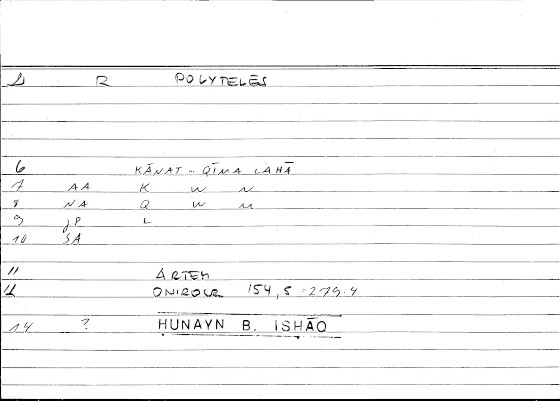 1 R POLYTELĒS
6 KĀNAT - QĪMA LAHĀ
7 AA K W N
8 NA Q W M
9 JP L
10 SA
11 ARTEM
12 ONIROCR 154,5 = 279.4
14 ? ḤUNAYN B. ISḤĀQ